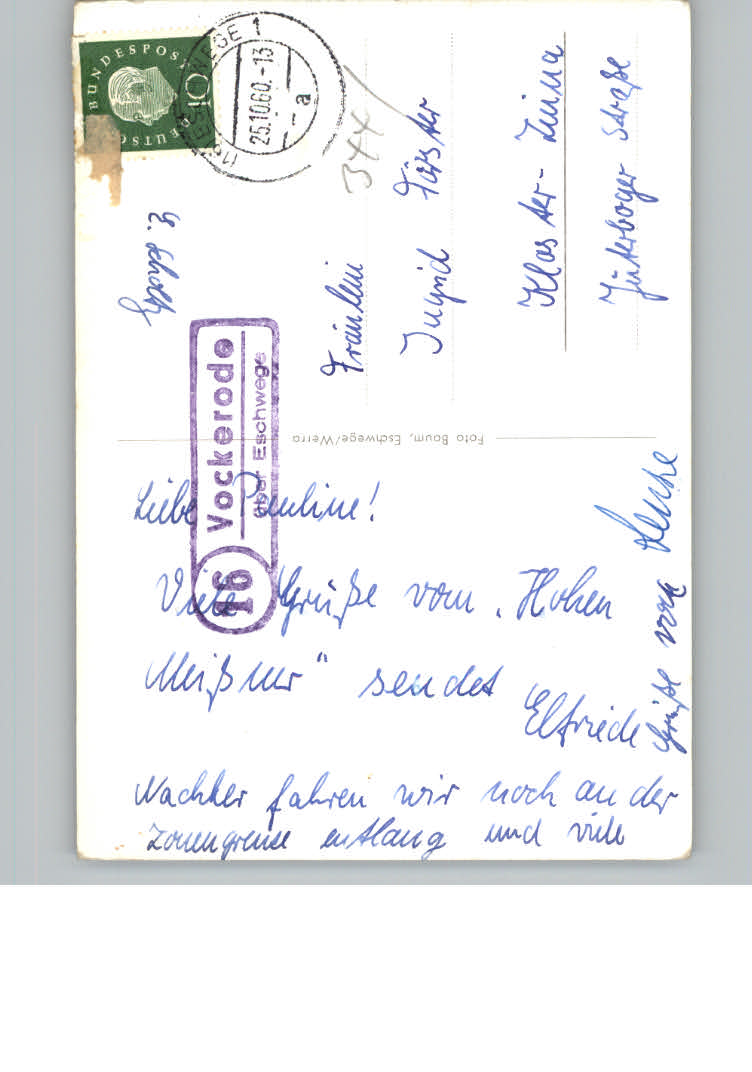 DEUTSCHE BUNDESPOST
10
ESCHWEGE 1
25.10.60.-13
a
344
E. Scholz
Fräulein
Ingrid Förster
Kloster-Zinna
Jüterboger Straße
16
Vockerode
über Eschwege
Foto Baum, Eschwege/Werra
Liebe Pauline!
Viele Grüße vom „Hohen
Meißner" sendet
Elfriede
Nachher fahren wir noch an der
Zonengrenze entlang und viele
Grüße von